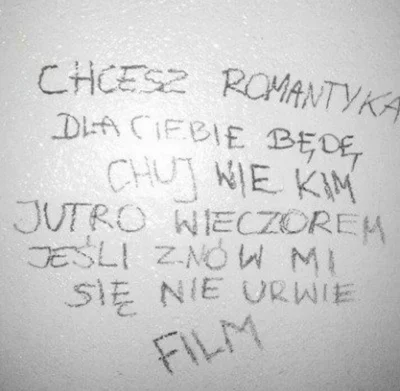 CHCESZ ROMANTYKA
DLA CIEBIE BĘDĘ
CHUJ WIE KIM
JUTRO WIECZOREM
JEŚLI ZNÓW MI
SIĘ NIE URWIE
FILM